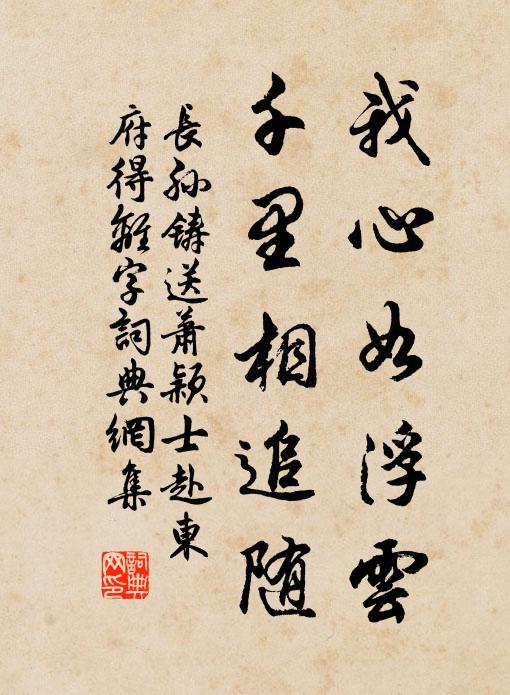 我心如浮雲
千里相追随
長孙鑄送萧颖士赴東
府得離字詞典網集
詞典网印